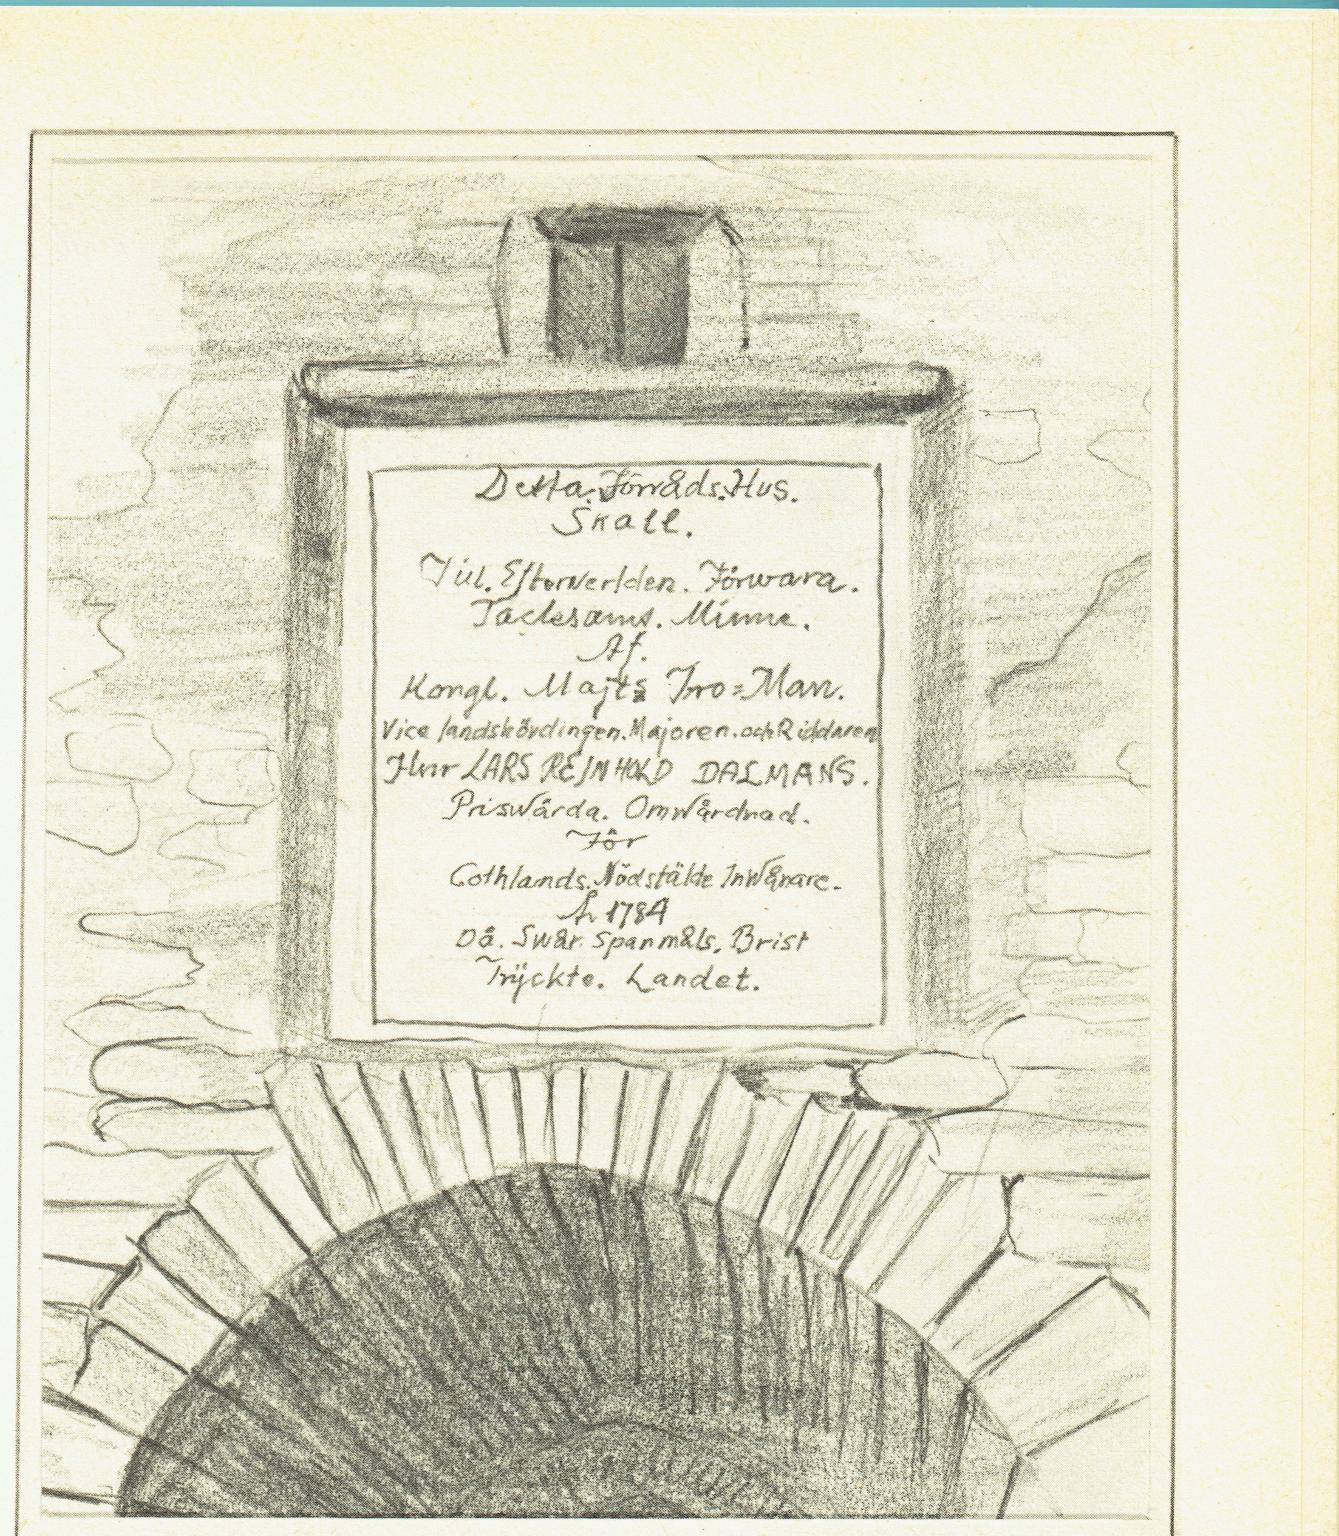 Detta. Förråds. Hus.
Skall.
Till. Efterwerlden. Förwara.
Tacksamt. Minne.
Af.
Kongl. Majts Tro=Man.
Vice landshövdingen. Majoren. och Riddaren
Herr LARS REJNHOLD DALMANS.
Priswärda. Omwårdnad.
För
Gothlands. Nödstälte Inwånare.
År 1784
Då. Swår. Spanmåls. Brist
Trÿckte. Landet.